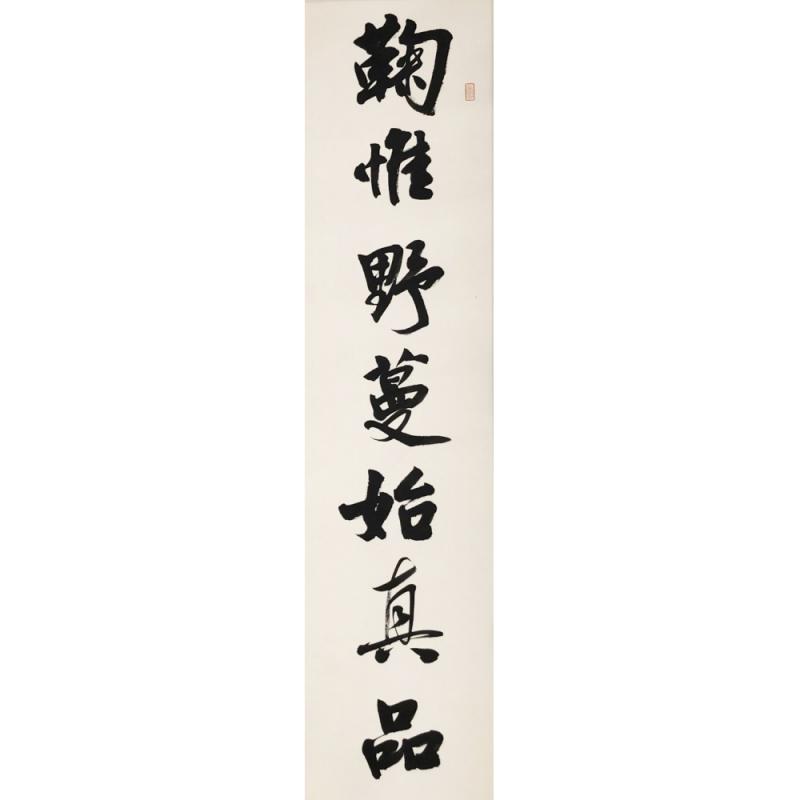 鞠惟野蔓始真品